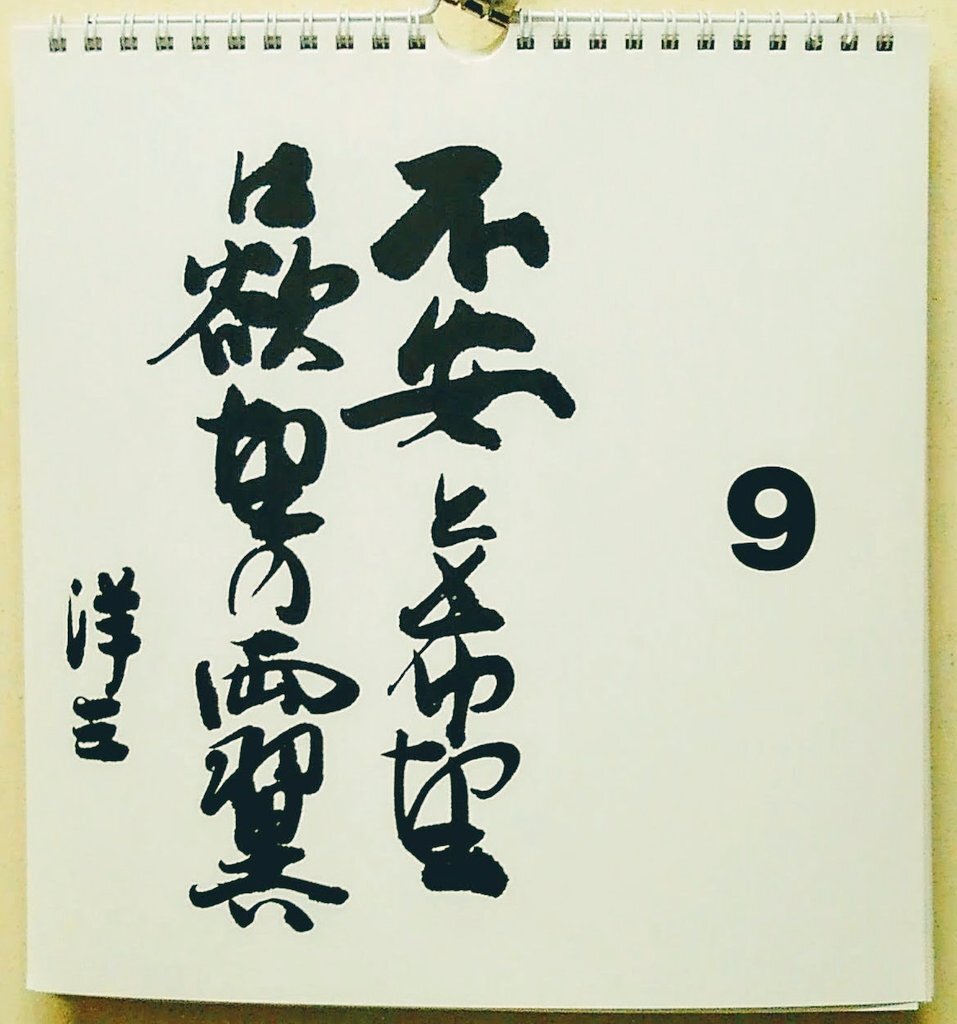 9
不安と希望
は欲望の両翼
洋三